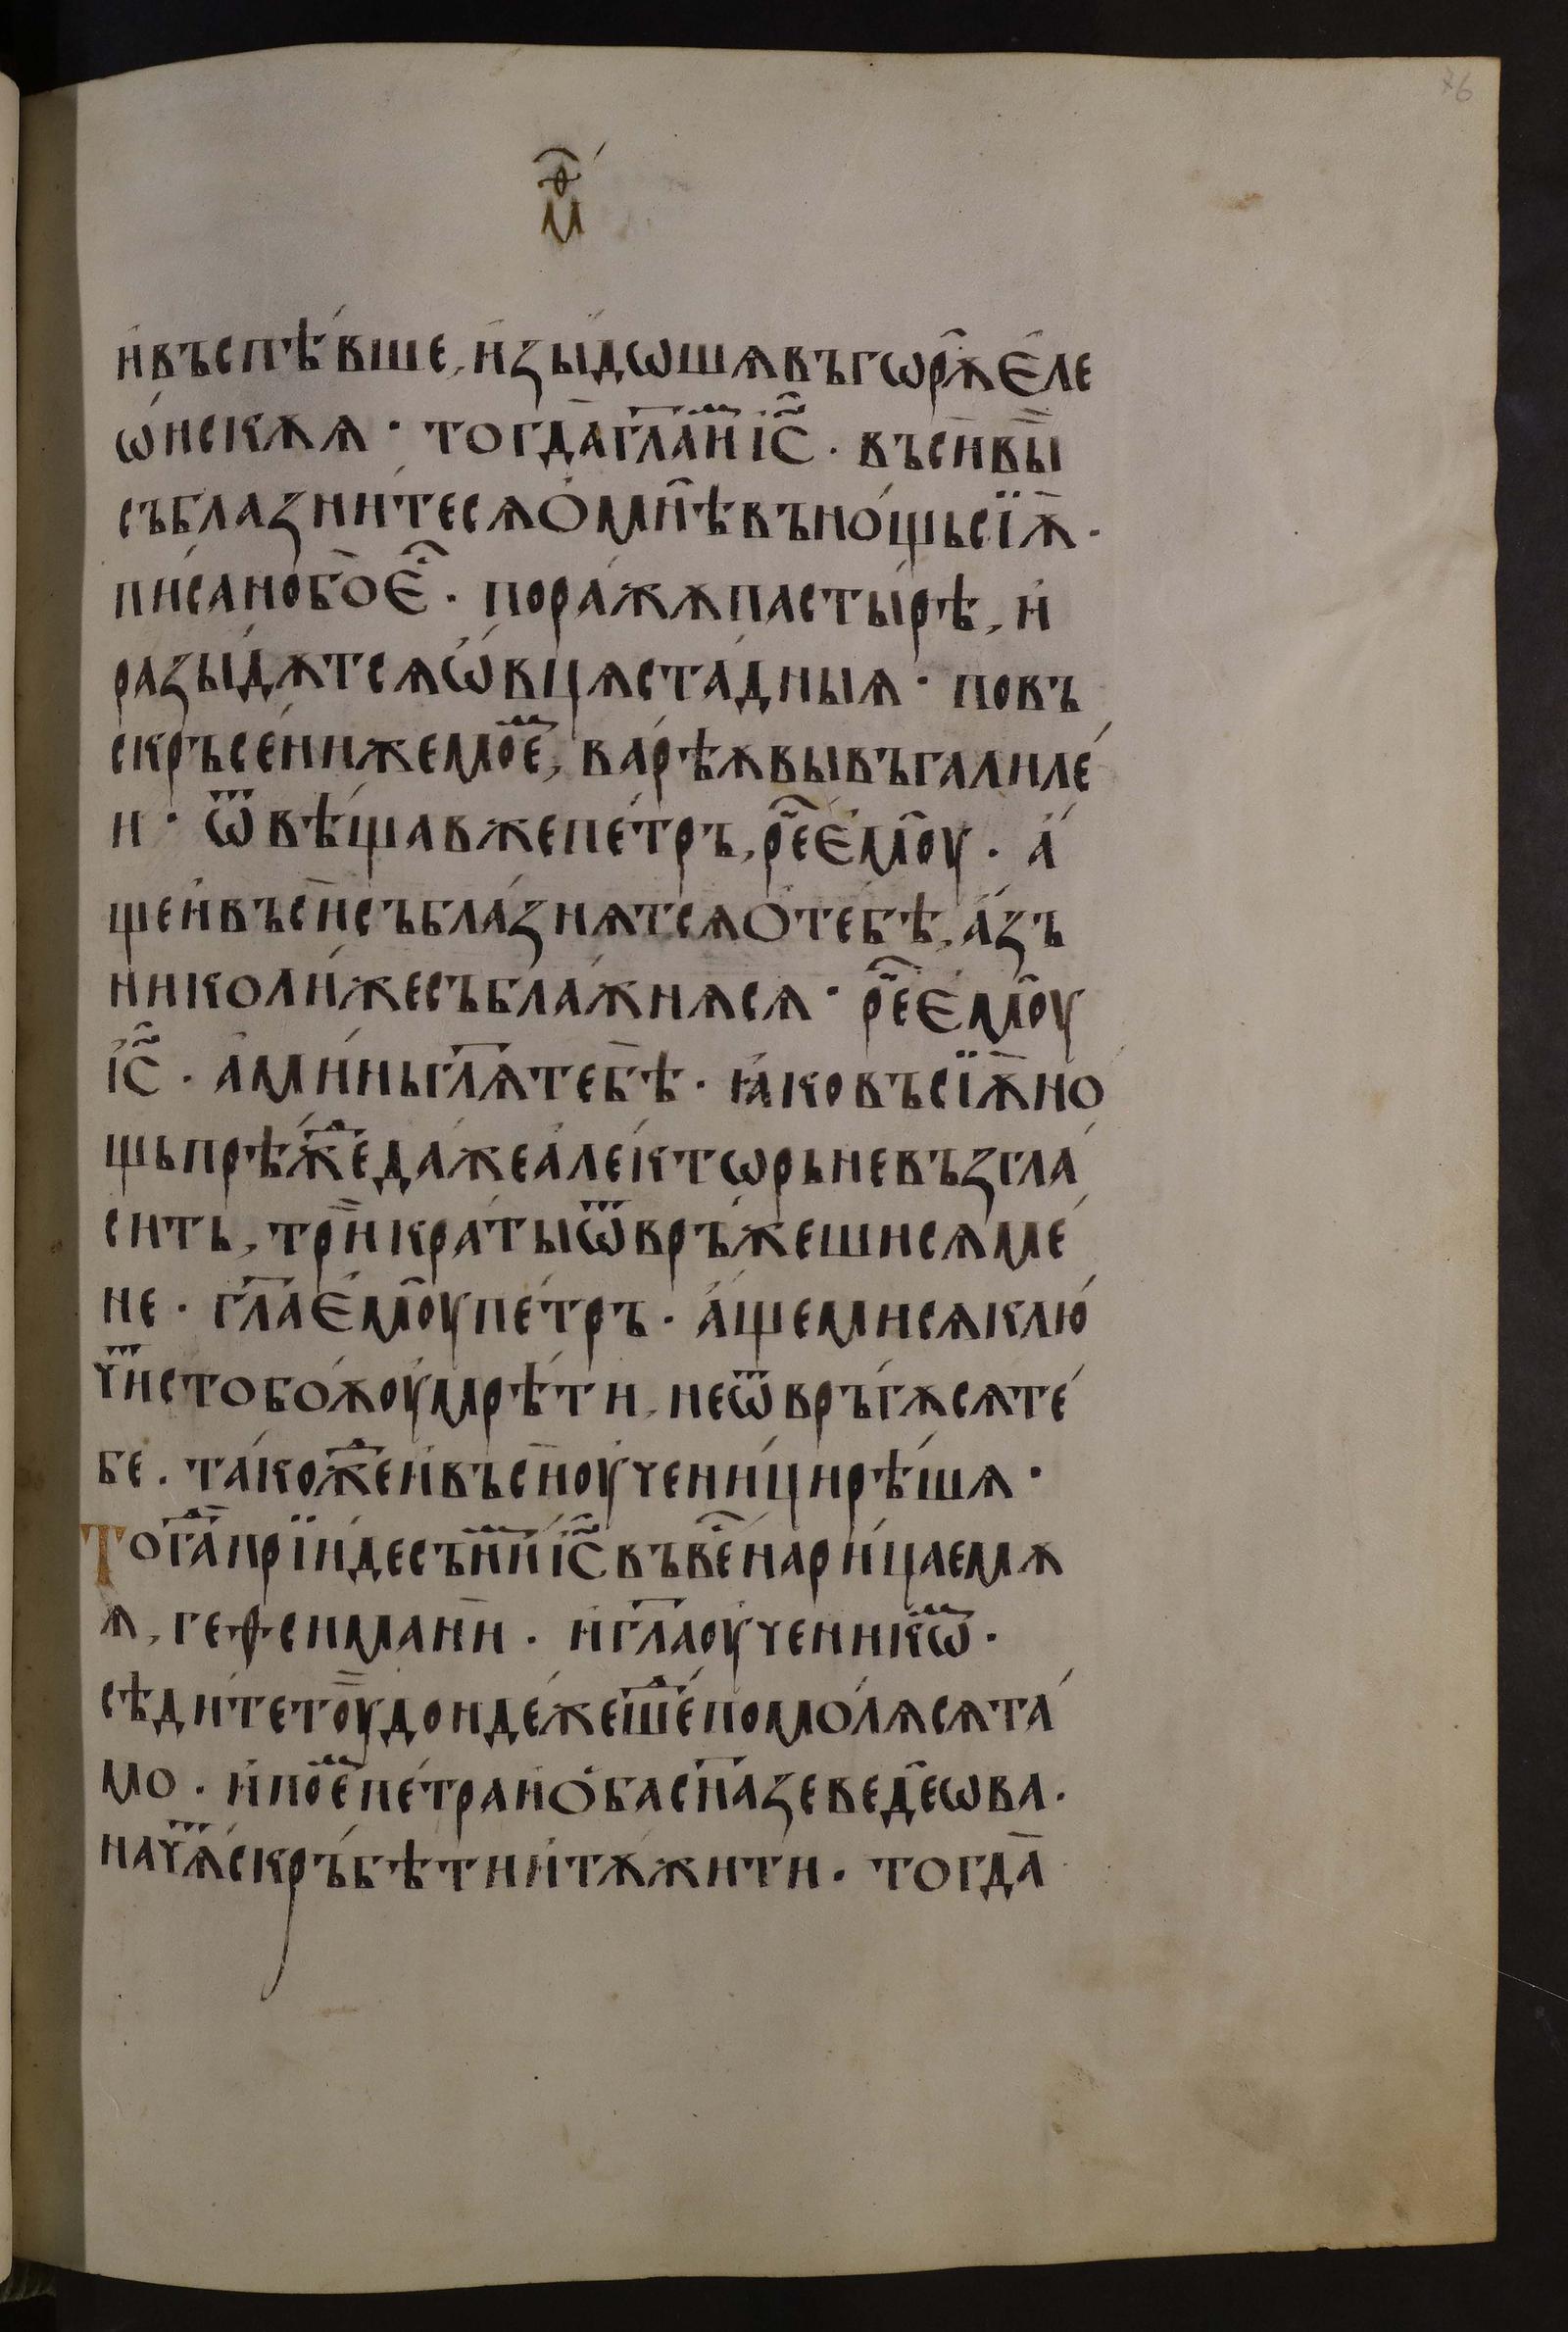 76
м҃ѳ
и҆въспѣ́вше, и҆зы́дошѧвъгѡрѫ̑є҆ле
ѡ҆́нскѫѧ · тогда̀гл҃аи҆̀мі҆с҃ . въсѝвы̀
съблазни́тесѧѻ҆мнѣ̑въно́щьсїѫ̀ ·
пи́санобѡ̀є҆с҃ . поражѫ̀пасты́рѣ, и҆
разы́дѫтсѧѡ҆́вцѧста́дныѧ · повъ
скръсе́нижемое҆м, варѣ́ѫвывъгалиле́
и · ѿвѣща́вжепе́тръ, рче҆є҆мо̑у . а҆́
щеи҆въсѝсъбла́знѧтсѧѻ҆тебѣ̀, а҆́зъ
николи́жесъбла́жнѧсѧ · рч҃еє҆мо̑у
і҆с҃ . а҆ми́ньгл҃ѧтебѣ̀ . ꙗ҆́ковъсїѫ̀но́
щьпрѣ́жⷣеда́жеа҆ле́кторьневъзгла
си́ть, трѝкра́тыѿвръ́жешисѧме́
не . гл҃ає҆мо̑упе́тръ . а҆́щемисѧклю́
читⷮстобо́ѫоу҆мрѣ́ти, неѿвръ́гѫсѧте́
бе . та́кожⷣеи҆въсѝоу҆чени́цирѣ́шѧ ·
Тогⷣа̀прїи́десъни́мⷨи҆і҆с҃въве́сⷭнарица́емѫ
ѧ, геѳсима́ни . и҆гл҃аоу҆ченикѡ́мⷨ ·
сѣди́тето̑удонде́жешеⷣ́помолѧ́сѧта́
мо . и҆пое́мⷨпе́траи҆ѻ҆́басн҃азеведе́ѡва ·
начѧ́тⷮскръбѣ́тии҆тѫжи́ти . тогда̀